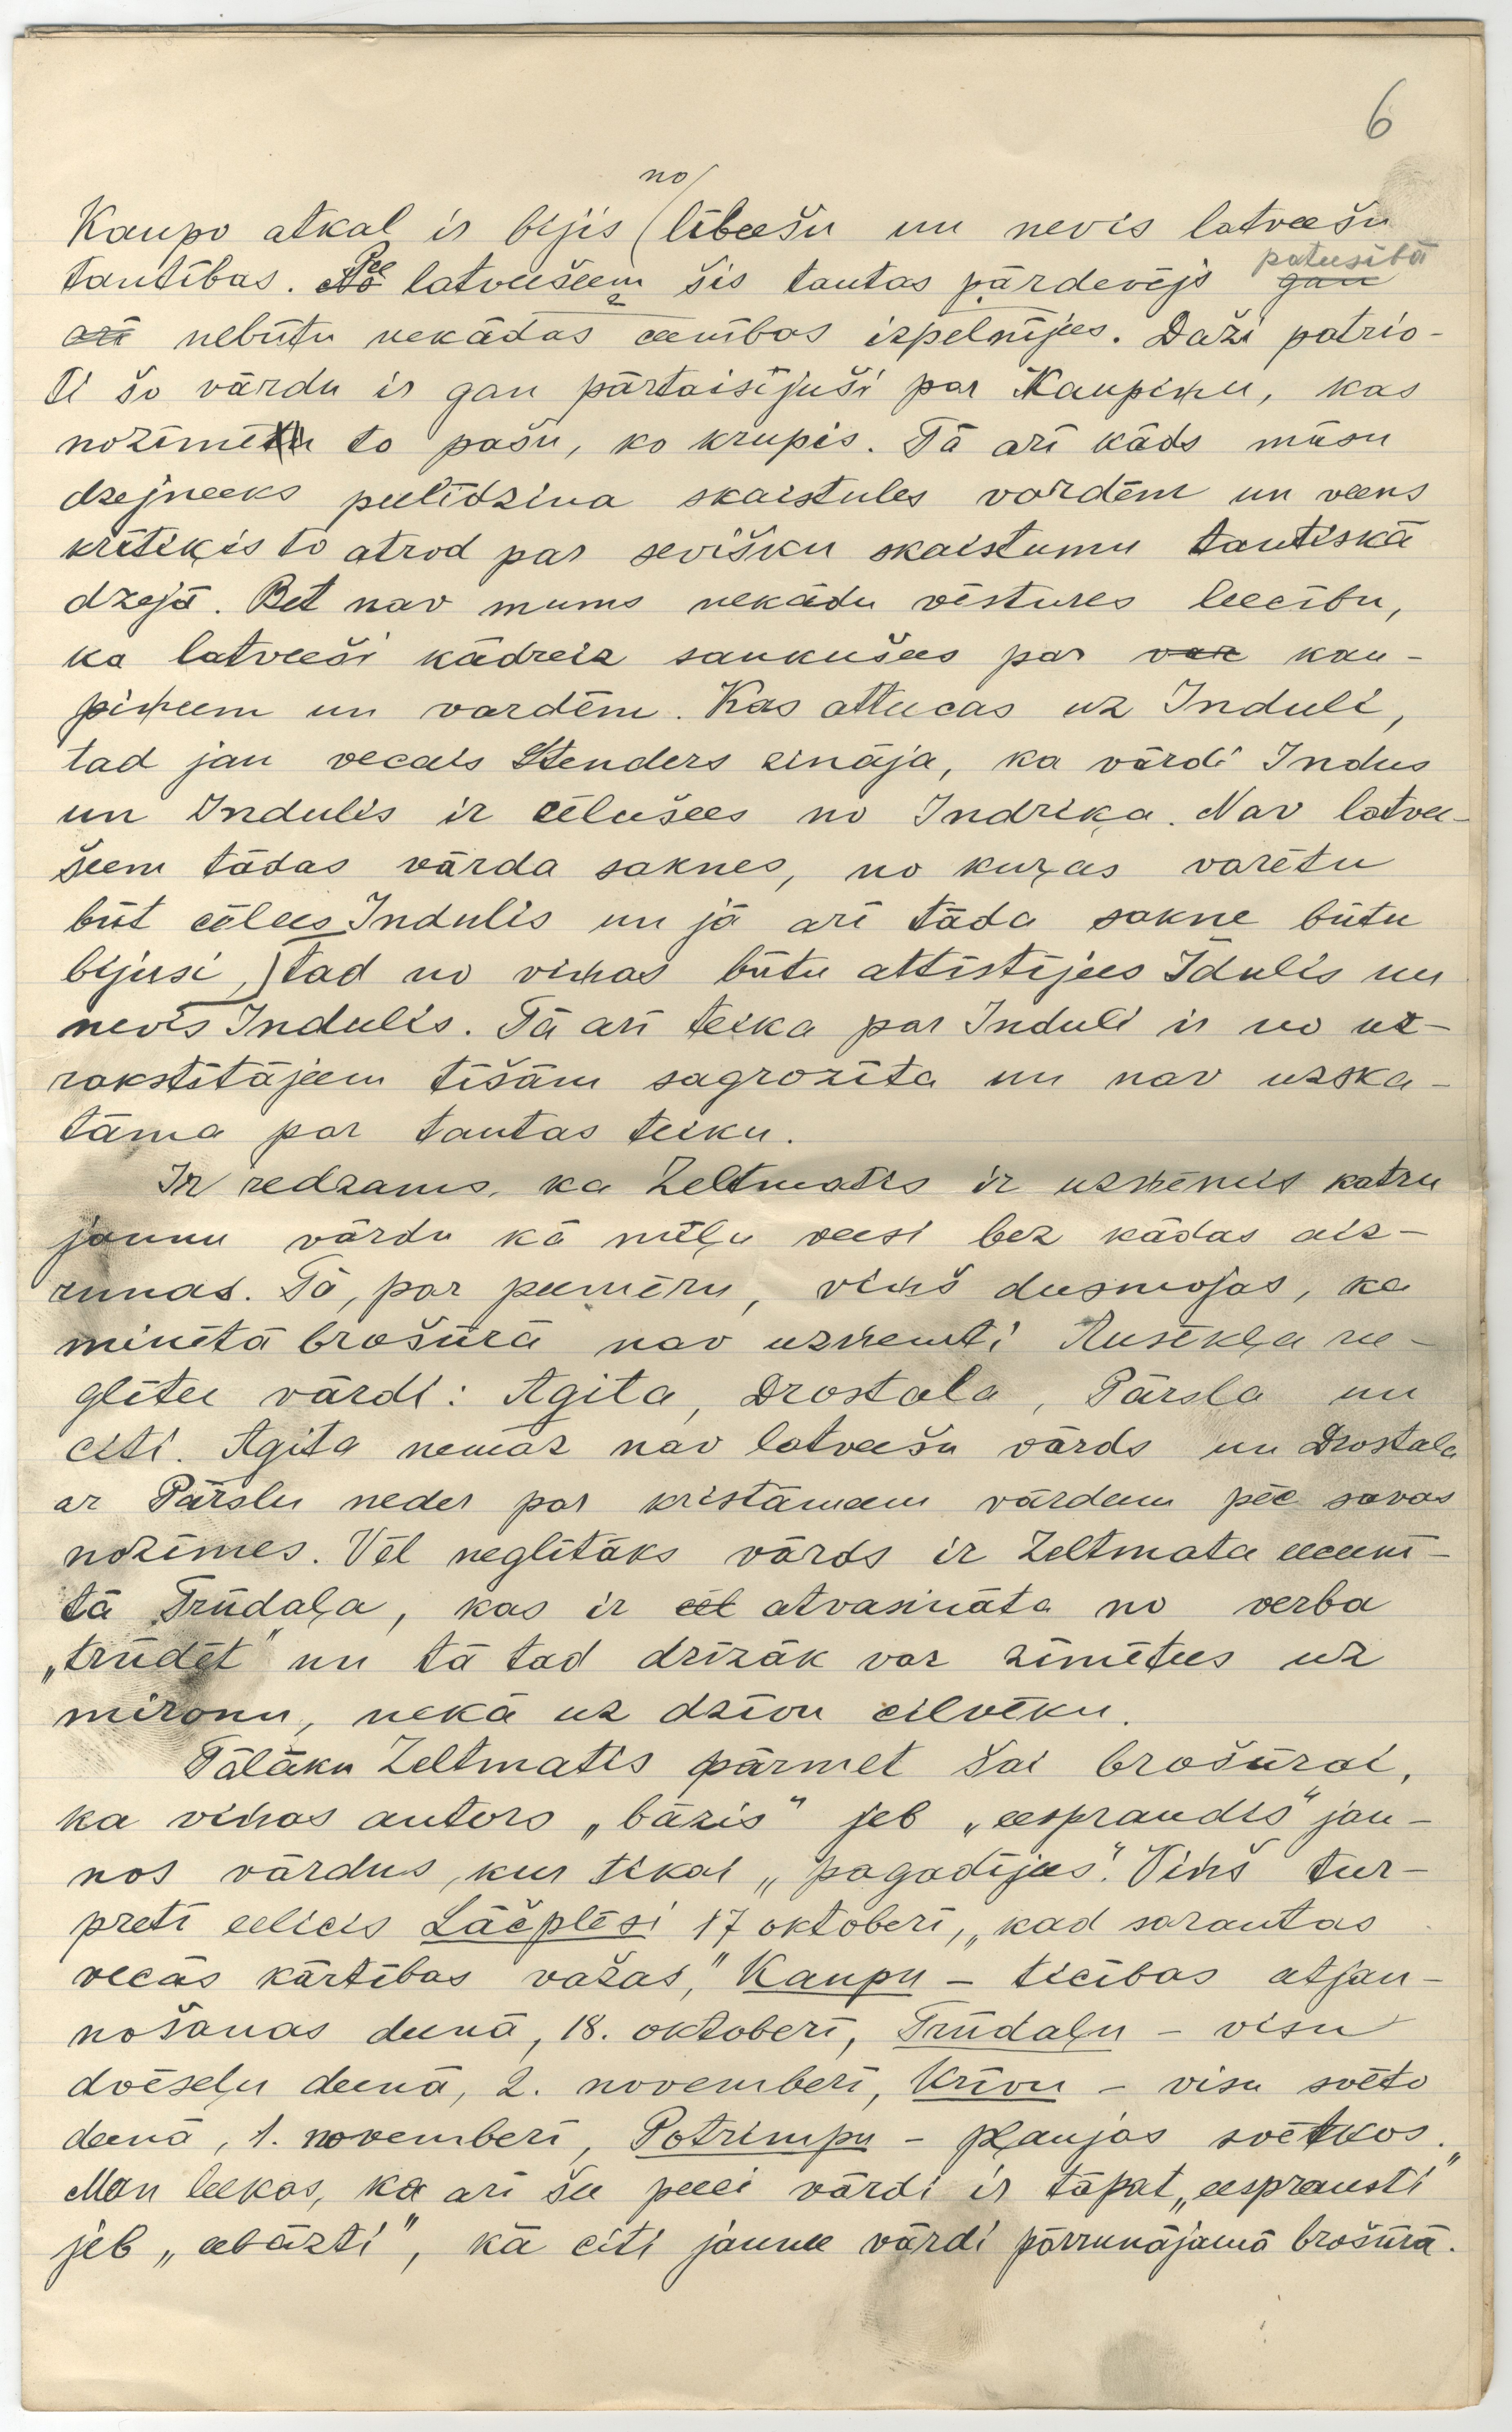 6
no
Kaupo atkal ir bijis lībeešu un nevis latveešu
tautības. No Pee latveešeem šis tautas pārdevējs gan pateesībā
arī nebūtu nekādas ceenības izpelnījees. Daži patrio-
ti šo vārdu ir gan pārtaisījuši par Kaupiņu, kas
nozīmē to pašu, ko krupis. Tā arī kāds mūsu
dzejneeks peelīdzina skaistules vardēm un veens
kritiķis to atrod par sevišķu skaistumu tautiskā
dzejā. Bet nav mums nekādu vēstures leecību,
ka latveeši kādreiz saukušees par var kau-
piņeem un vardēm. Kas atteecas uz Induli,
tad jau vecais Stenders zināja, ka vārdi Indus
un Indulis ir cēlušees no Indriķa. Nav latvee-
šeem tādas vārda saknes, no kuŗas varētu
būt cēlees Indulis un jā arī tāda sakne būtu
bijusi, tad no viņas būtu attīstījees Īdulis un
nevis Indulis. Tā arī teika par Induli ir no uz-
rakstītājeem tīšām sagrozīta un nav uzska-
tāma par tautas teiku.
Ir redzams, ka Zeltmatis ir uzņēmis katru
jaunu vārdu kā mīļu veesi bez kādas aiz-
runas. Tā, par peemēru, viņš dusmojas, ka
minētā brošūrā nav uzņemti Ausekļa ne-
glītee vārdi: Agita, Drostala, Pārsla un
citi. Agita nemaz nav latveešu vārds un Drostala
ar Pārslu neder par kristāmeem vārdeem pēc savas
nozīmes. Vēl neglītāks vārds ir Zeltmata eeceenī-
tā Trūdaļa, kas ir cēl atvasināta no verba
„trūdēt" un tā tad drīzāk var zīmētees uz
mironu, nekā uz dzīvu cilvēku.
Tālāku Zeltmatis pārmet šai brošūrai,
ka viņas autors „bāzis" jeb „eespraudis" jau-
nos vārdus, kur tikai „pagadījees". Viņš tur-
preti eelicis Lāčplēsi 17 oktoberī, „kad sarautas
vecās kārtības važas," Kaupu – ticības atjau-
nošanas deenā, 18. oktoberī, Trūdaļu – visu
dvēseļu deenā, 2. novemberī, Krīvu – visu svēto
deenā, 1. novemberī, Potrimpu – pļaujas svētkos.
Man leekas, ka arī šee peeci vārdi ir tāpat „eesprausti"
jeb „eebāzti", kā citi jaunee vārdi pārrunājamā brošūrā.